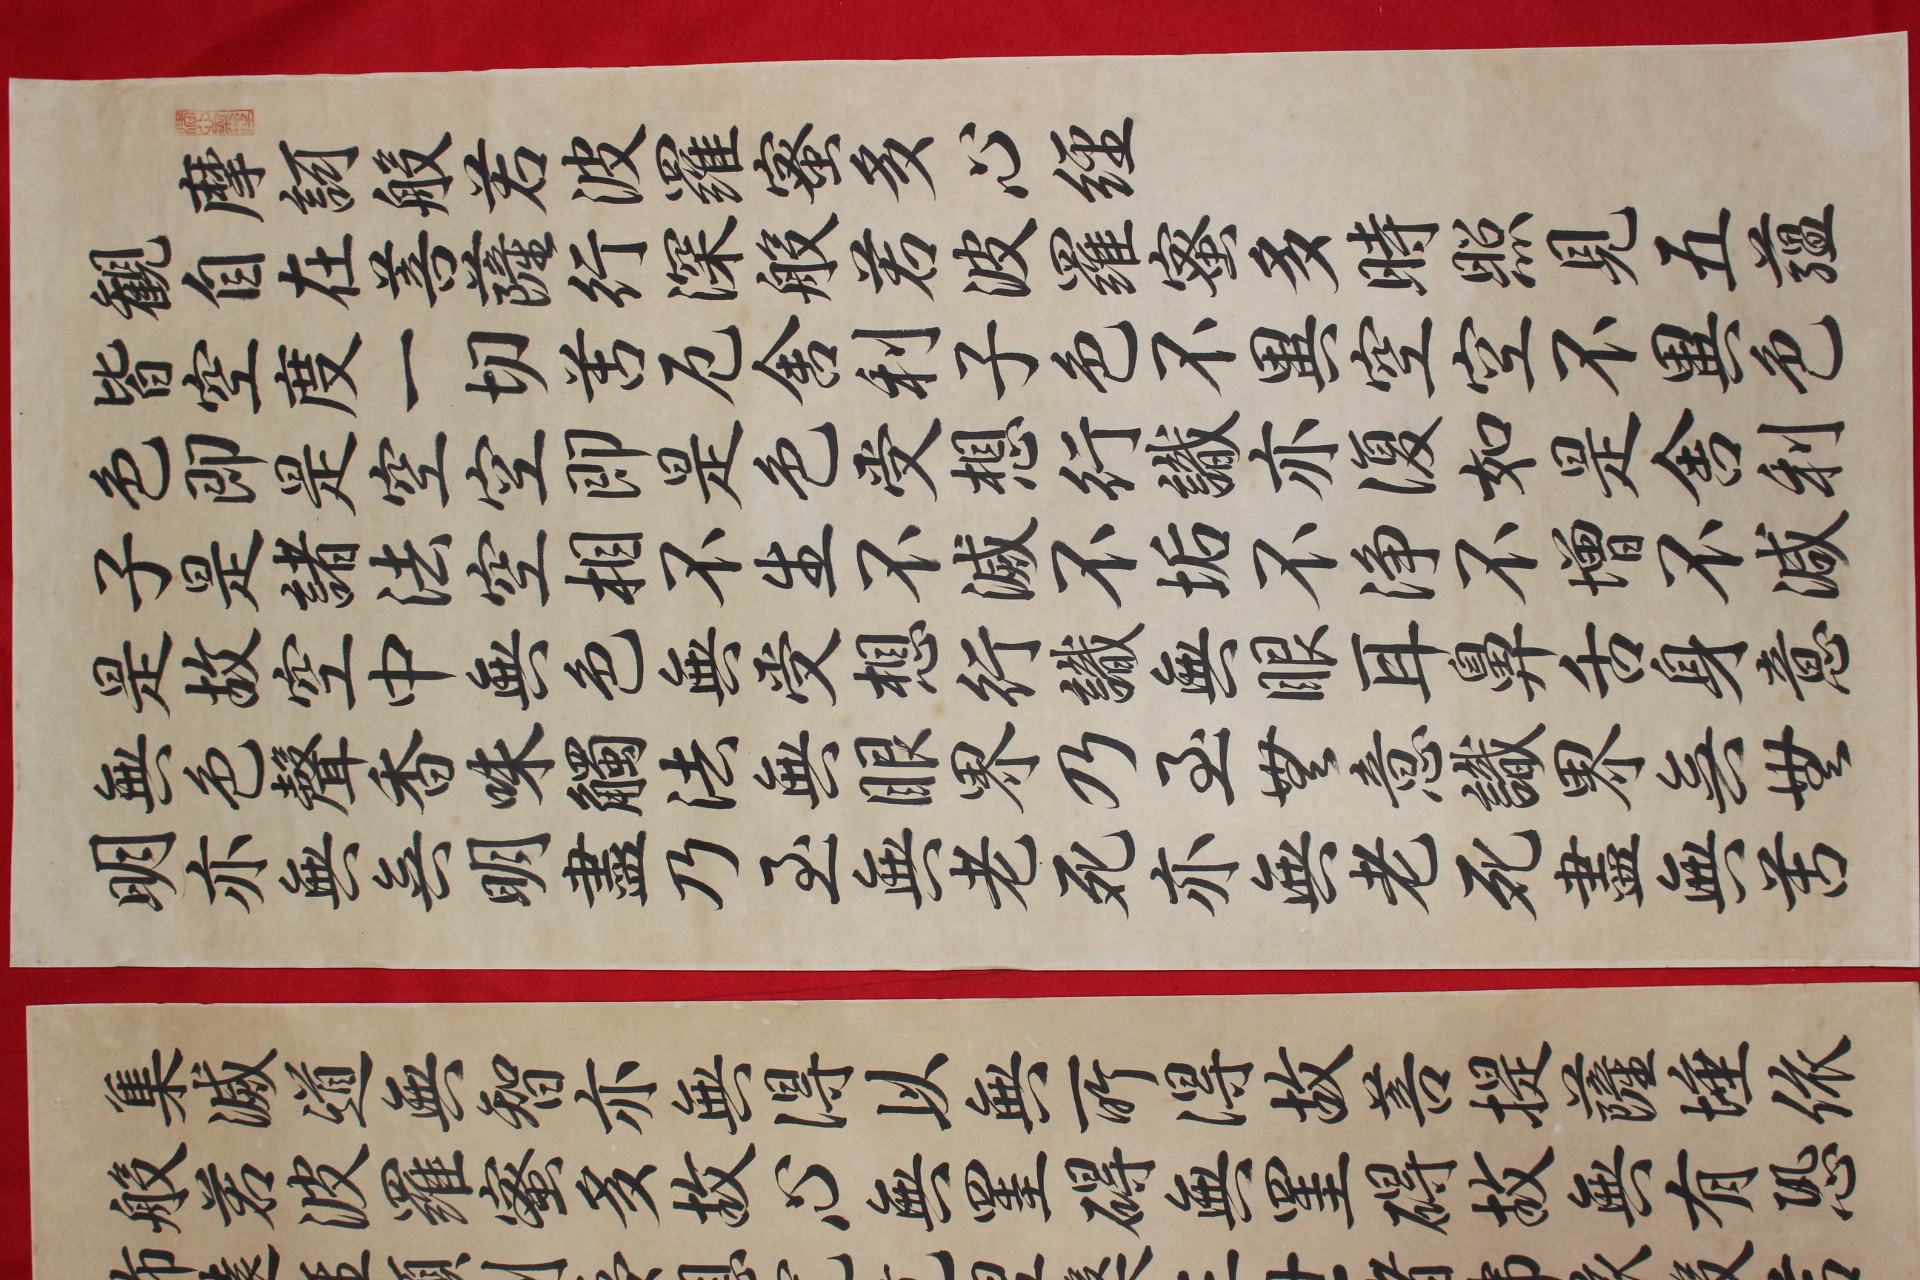 摩訶般若波羅蜜多心経
観自在菩薩行深般若波羅蜜多時照見五蘊
皆空度一切苦厄舍利子色不異空空不異色
色即是空空即是色受想行識亦復如是舍利
子是諸法空相不生不滅不垢不浄不増不減
是故空中無色無受想行識無眼耳鼻舌身意
無色聲香味觸法無眼界乃至無意識界無無
明亦無無明盡乃至無老死亦無老死盡無苦
集滅道無智亦無得以無所得故菩提薩埵依
般若波羅蜜多故心無罣碍無罣碍故無有恐